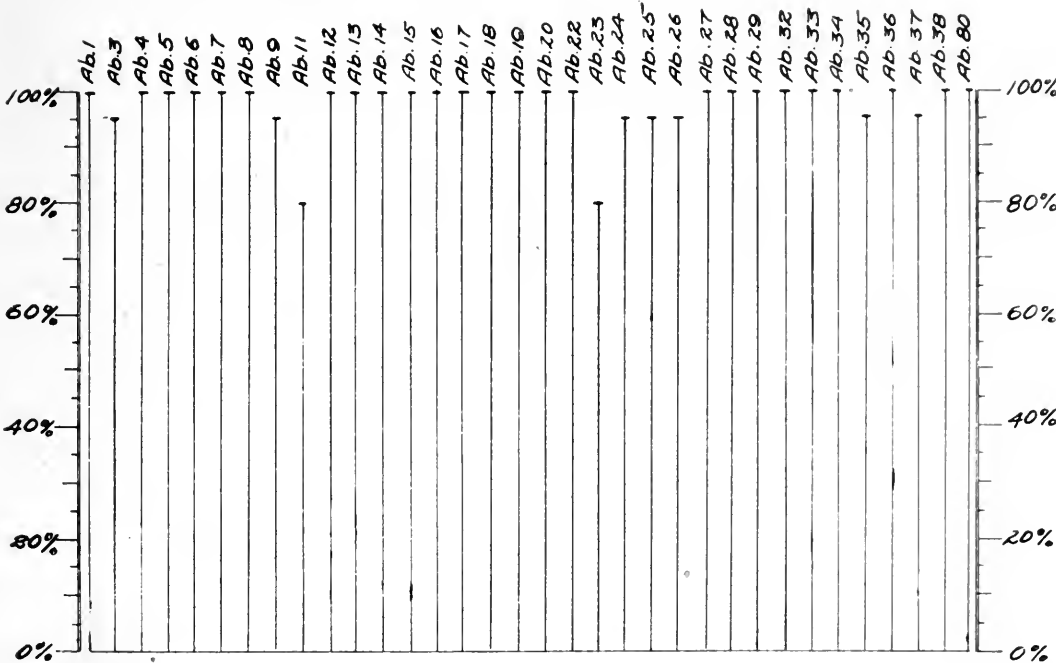 Ab.1
Ab.3
Ab.4
Ab.5
Ab.6
Ab.7
Ab.8
Ab.9
Ab.11
Ab.12
Ab.13
Ab.14
Ab.15
Ab.16
Ab.17
Ab.18
Ab.19
Ab.20
Ab.22
Ab.23
Ab.24
Ab.25
Ab.26
Ab.27
Ab.28
Ab.29
Ab.32
Ab.33
Ab.34
Ab.35
Ab.36
Ab.37
Ab.38
Ab.80
100% 100%
80% 80%
60% 60%
40% 40%
20% 20%
0% 0%